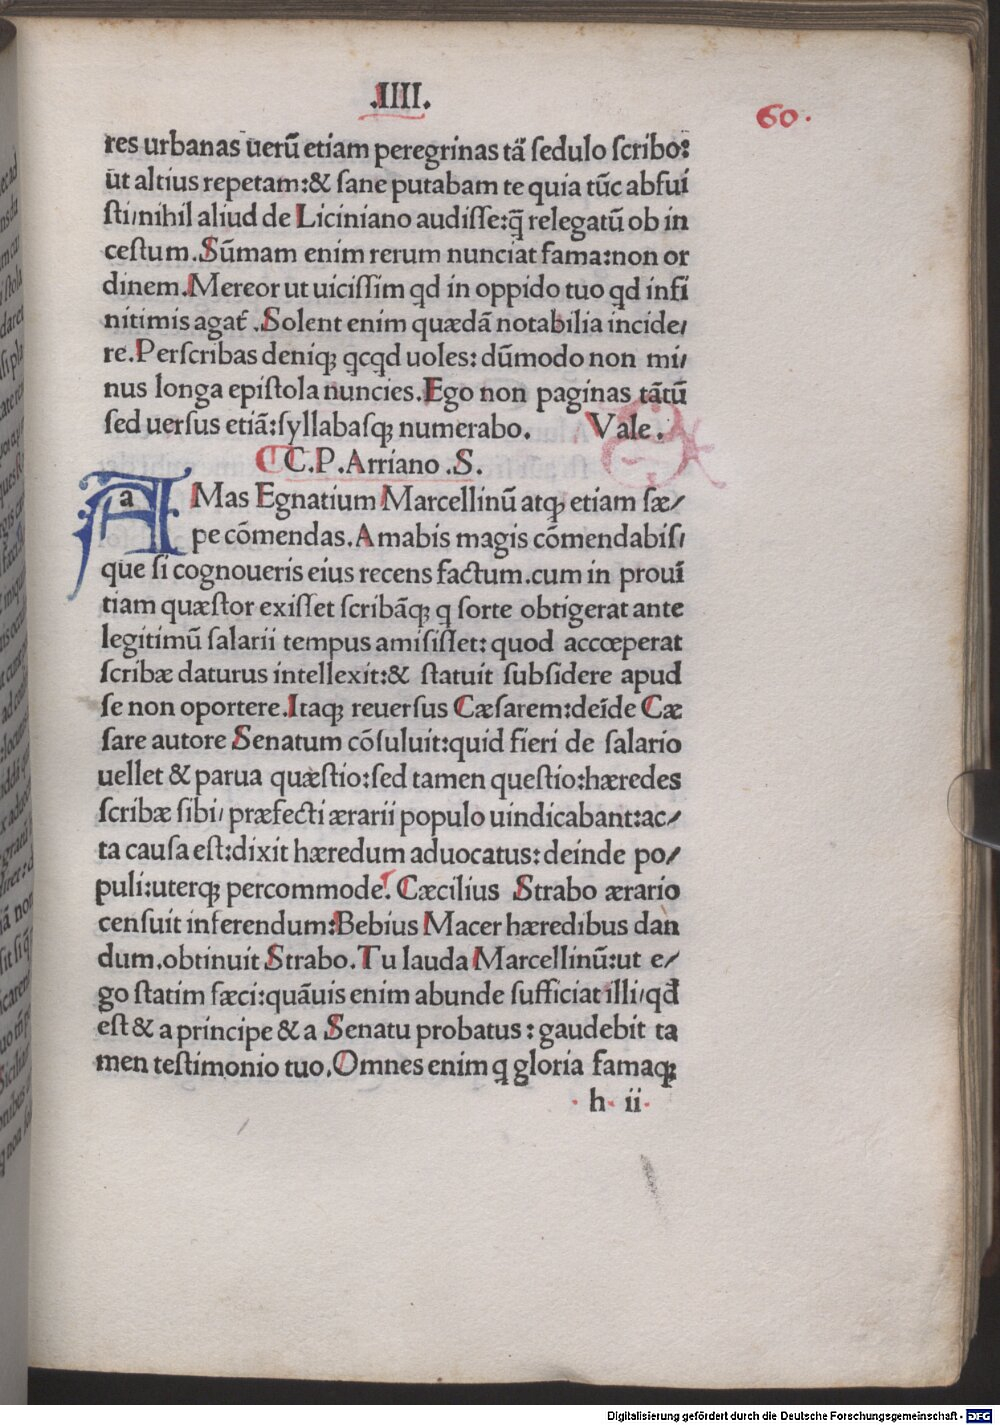 .IIII.
60.
res urbanas uerũ etiam peregrinas tã ſedulo ſcribo:
ut altius repetam:& ſane putabam te quia tũc abfui
ſti/nihil aliud de Liciniano audiſſe:q̃ relegatũ ob in
ceſtum.Sũmam enim rerum nunciat fama:non or
dinem.Mereor ut uiciſſim qd in oppido tuo qd infi
nitimis agat̃ .Solent enim quædã notabilia incide/
re.Perſcribas deniqꝫ qcqd uoles: dũmodo non mi/
nus longa epiſtola nuncies.Ego non paginas tãtũ
ſed uerſus etiã:ſyllabaſqꝫ numerabo. Vale.
C.P.Arriano .S.
a MAs Egnatium Marcellinũ atqꝫ etiam ſæ/
pe cõmendas.Amabis magis cõmendabiſ/
que ſi cognoueris eius recens factum.cum in prouĩ
tiam quæſtor exiſſet ſcribãqꝫ q ſorte obtigerat ante
legitimũ ſalarii tempus amiſiſſet: quod accœperat
ſcribæ daturus intellexit:& ſtatuit ſubſidere apud
ſe non oportere.Itaqꝫ reuerſus Cæſarem:deĩde Cæ
ſare autore Senatum cõſuluit:quid fieri de ſalario
uellet & parua quæſtio:ſed tamen queſtio:hæredes
ſcribæ ſibi/ præfecti ærarii populo uindicabant:ac/
ta cauſa eſt:dixit hæredum aduocatus: deinde po/
puli:uterqꝫ percommode. Cæcilius Strabo ærario
cenſuit inferendum:Bebius Macer hæredibus dan
dum.obtinuit Strabo.Tu lauda Marcellinũ:ut e/
go ſtatim fæci:quãuis enim abunde ſufficiat illi/qd̃
eſt & a principe & a Senatu probatus : gaudebit ta
men teſtimonio tuo.Omnes enim q gloria famaqꝫ
h ii
Digitalisierung gefördert durch die Deutsche Forschungsgemeinschaft - DFG